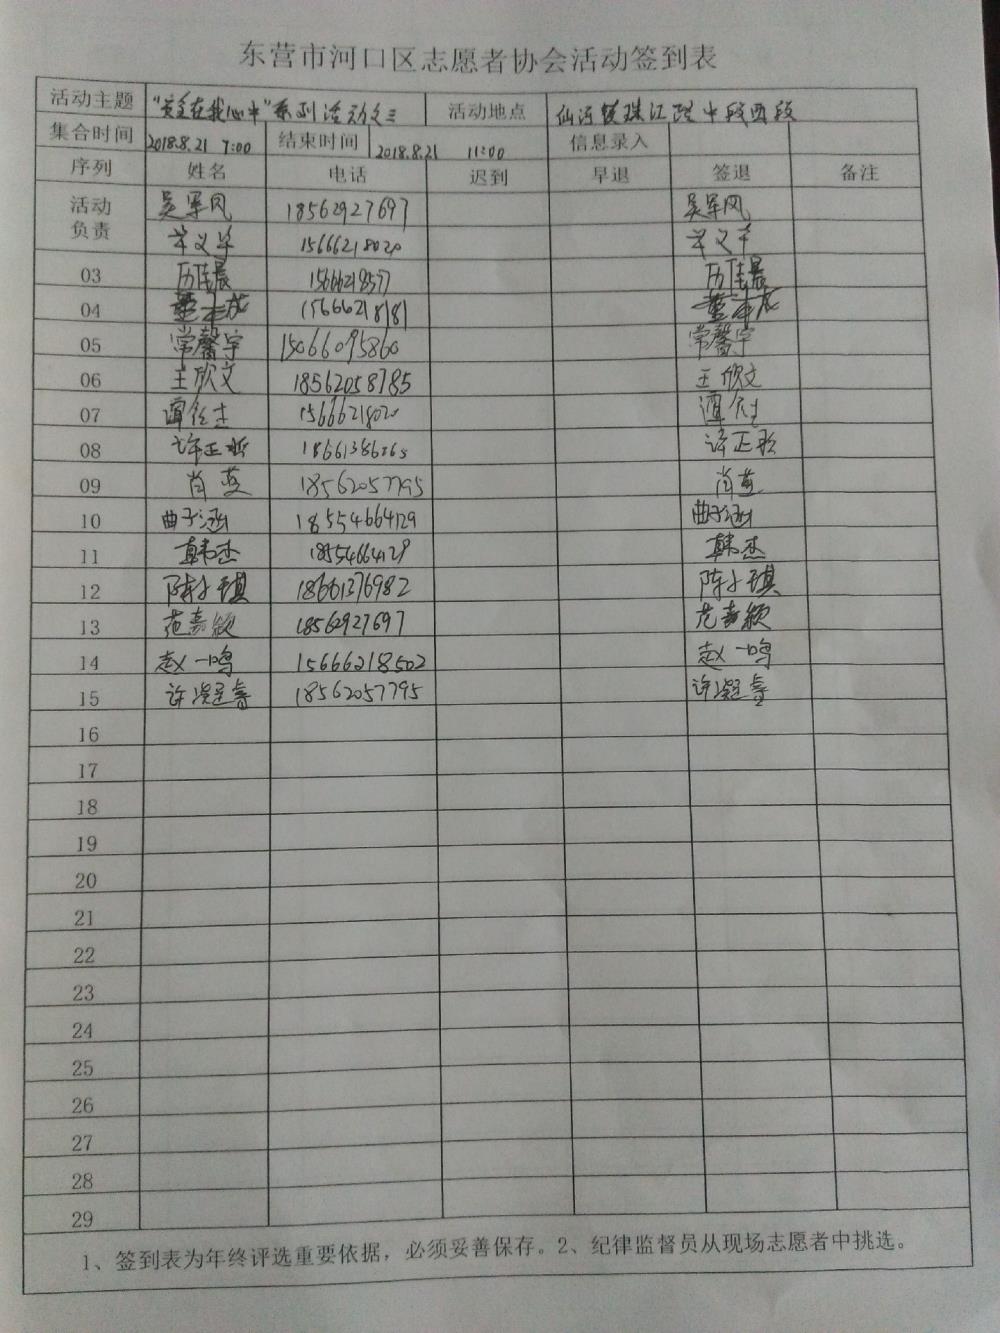 东营市河口区志愿者协会活动签到表
活动主题 "安全在我心中"系列活动之三 活动地点 仙河镇珠江路中段西段
集合时间 2018.8.21 7:00 结束时间 2018.8.21 11:00 信息录入
序列 姓名 电话 迟到 早退 签退 备注
活动负责 吴军风 18562927697 吴军风
15666218020
03 历佳晨 15666218577 历佳晨
04 15666218181
05 常馨宇 15066095860 常馨宇
06 王欣文 18562058785 王欣文
07 谭 15666218020 谭
08 许正 18661386265 许正
09 肖燕 18562057795 肖燕
10 曲子涵 18554664129 曲子涵
11 韩杰 18554664129 韩杰
12 陈小琪 18661376982 陈小琪
13 范嘉颖 18562927697 范嘉颖
14 赵一鸣 15666218502 赵一鸣
15 许凝睿 18562057795 许凝睿
16
17
18
19
20
21
22
23
24
25
26
27
28
29
1、签到表为年终评选重要依据，必须妥善保存。2、纪律监督员从现场志愿者中挑选。